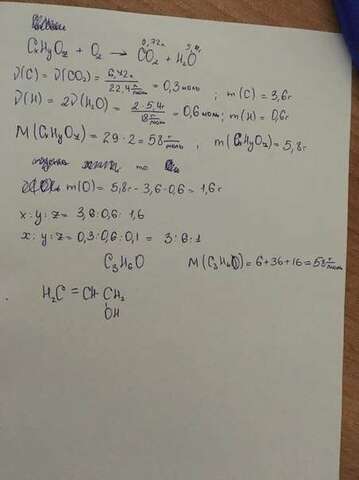 6,72л 5,4г
CxHyOz + O2 → CO2 + H2O
ν(C) = ν(CO2) = 6,72л / 22,4 л/моль = 0,3 моль ; m(C) = 3,6г
ν(H) = 2ν(H2O) = 2·5,4г / 18 г/моль = 0,6 моль ; m(H) = 0,6г
M(CxHyOz) = 29·2 = 58 г/моль , m(CxHyOz) = 5,8г
m(O) = 5,8г - 3,6 - 0,6 = 1,6г
x : y : z = 3,6 : 0,6 : 1,6
x : y : z = 0,3 : 0,6 : 0,1 = 3 : 6 : 1
C3H6O M(C3H6O) = 6 + 36 + 16 = 58 г/моль
H2C = CH - CH2
OH